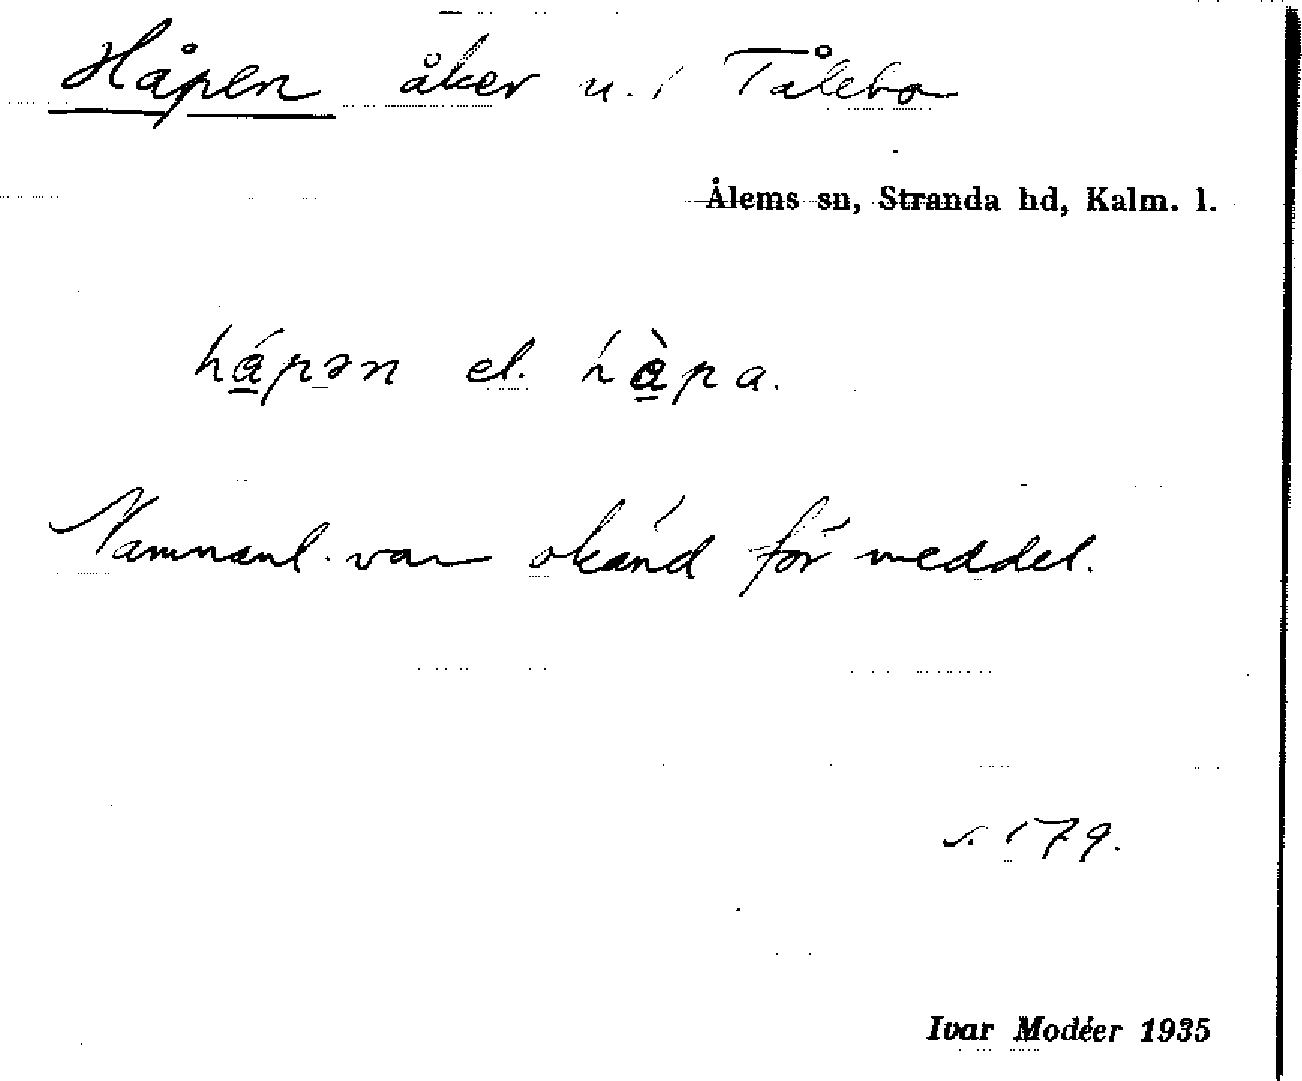 Håpen åker n. i Tålebo
Ålems sn, Stranda hd, Kalm. l.
há̱pən el. hà̱pa.
Namnanl. var okänd för meddel.
s. 179.
Ivar Modéer 1935